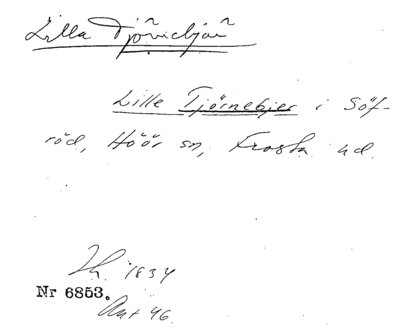 Lilla Tjörnebjär
Lille Tjörnebjer i Söf-
röd, Höör sn, Frosta hd.
1834
Nr 6853.
Ant 46